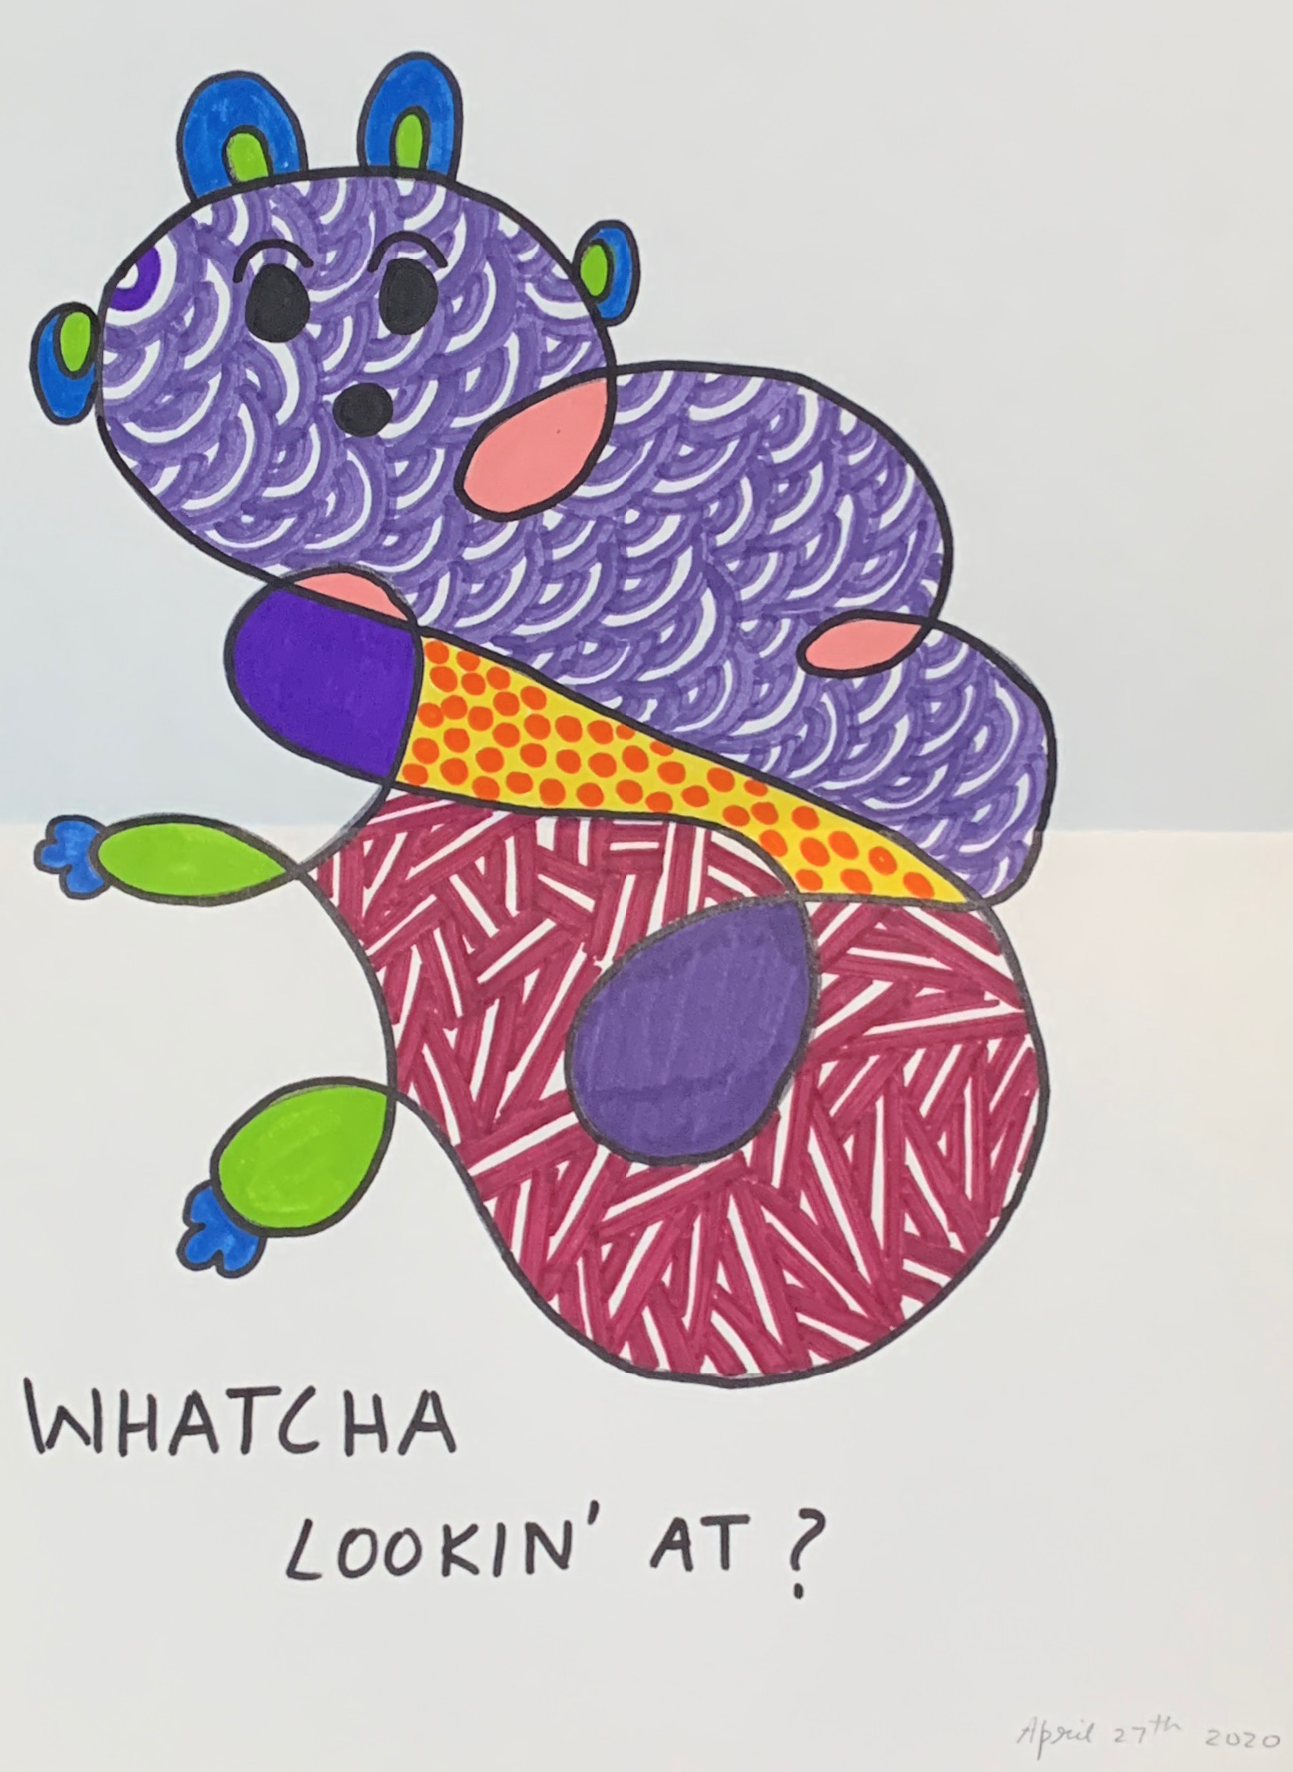 WHATCHA
LOOKIN' AT ?
April 27th 2020